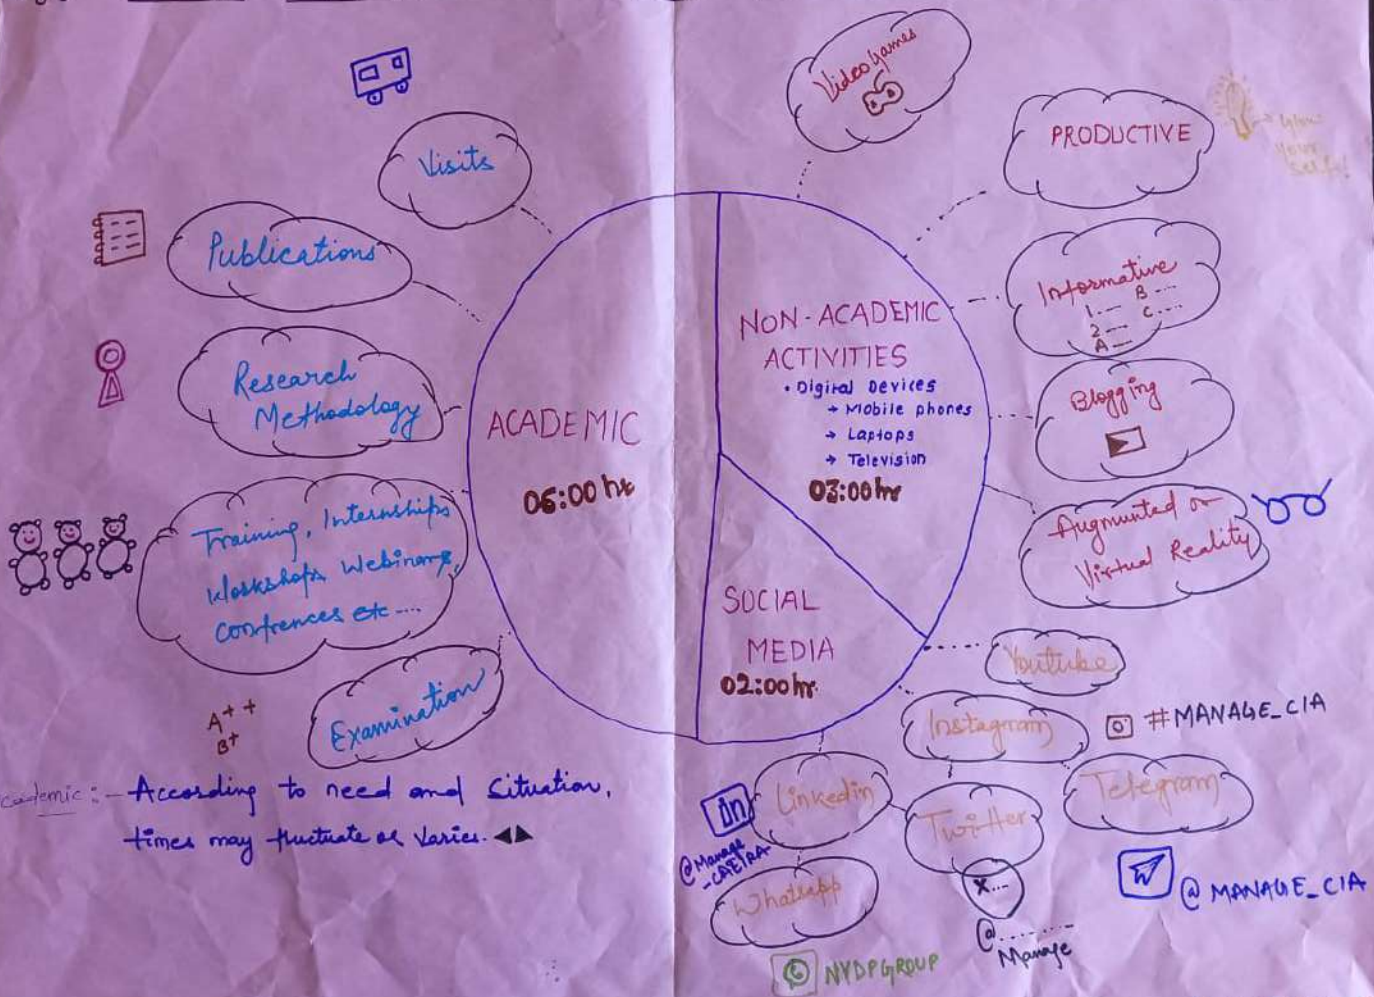 Visits
Publications
Research
Methodology
Training, Internships
Workshops Webinars,
Confrences etc ....
Examination
A++
B+
ACADEMIC
06:00 hr
NON-ACADEMIC
ACTIVITIES
• Digital Devices
→ Mobile phones
→ Laptops
→ Television
03:00 hr
SOCIAL
MEDIA
02:00 hr
Video Games
PRODUCTIVE
your
Informative
1.--- B ---
2 --- C ---
A ---
Blogging
Augmunted or
Virtual Reality
Youtube
Instagram
#MANAGE_CIA
Telegram
@MANAGE_CIA
Linkedin
in
@Manage
Twitter
X...
@........
Manage
Whatsapp
NYDPGROUP
Academic:- According to need and Situation,
times may fluctuate or varies.